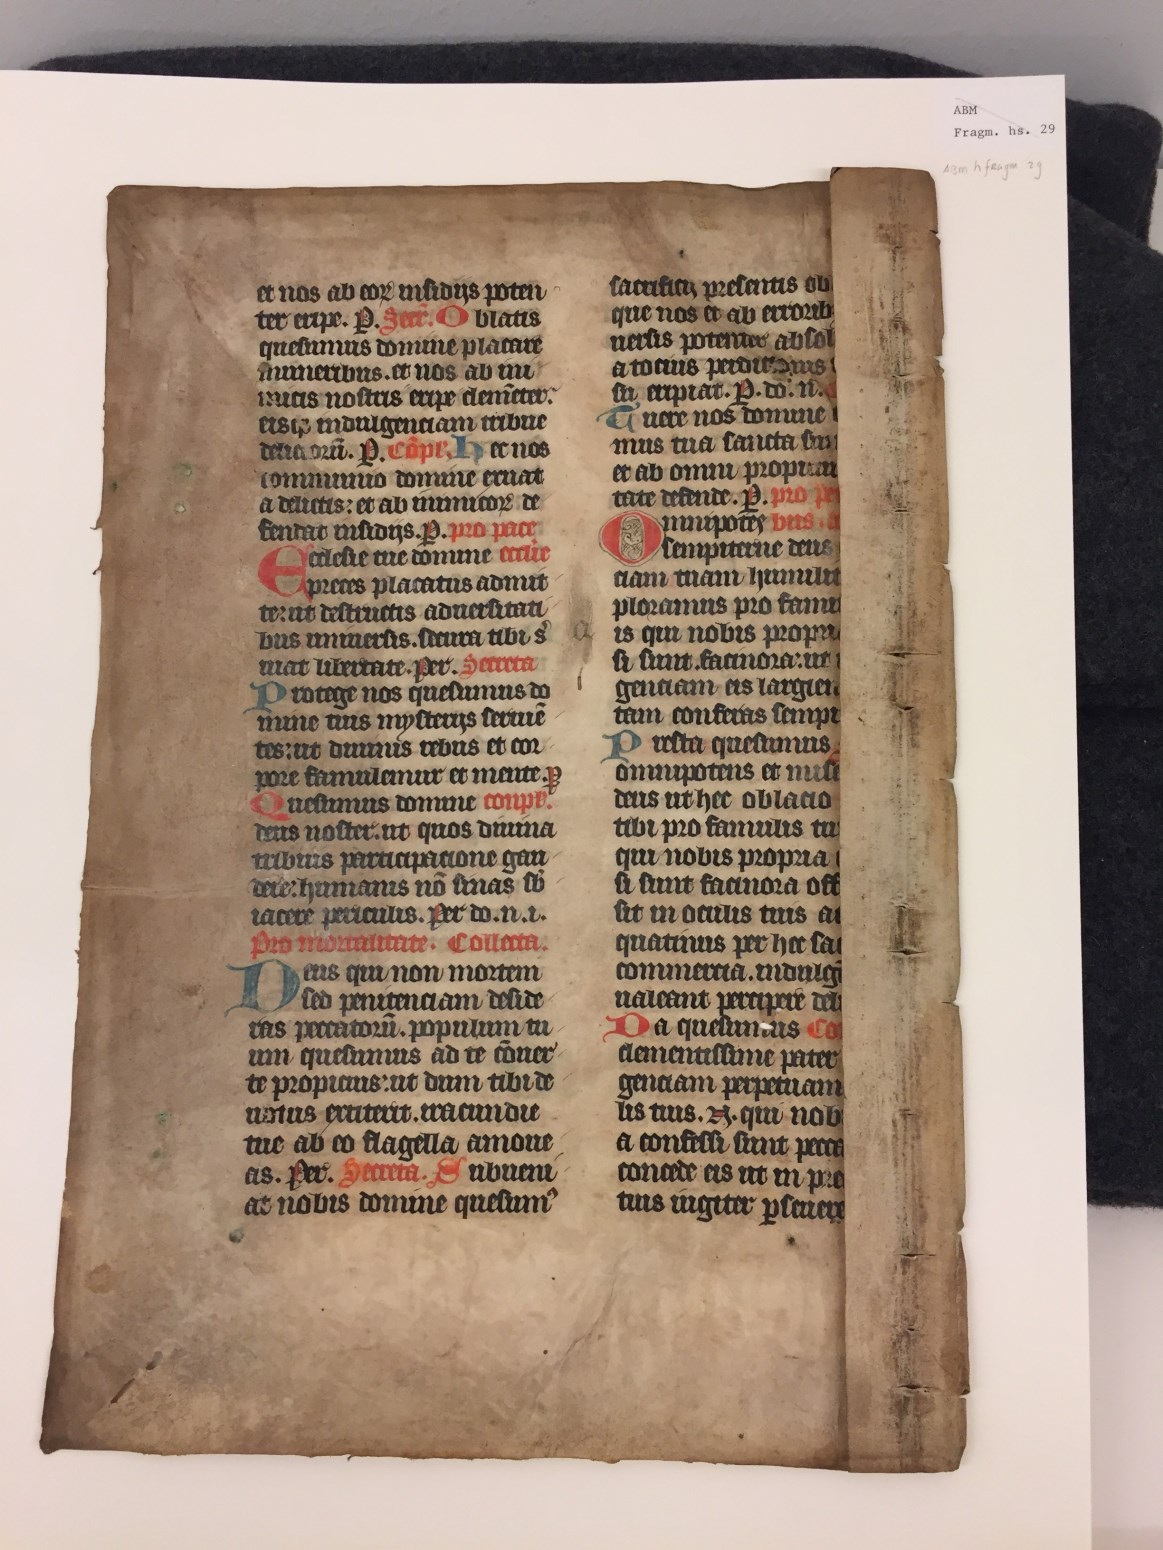 ABM
Fragm. hs. 29
ABM h fragm 29
et nos ab eoꝝ insidijs poten
ter eripe. P. Secr̄. Oblatis
quesumus domine placare
muneribus. et nos ab ini
micis nostris eripe clem̄eter.
eisqꝫ indulgenciam tribue
delictorū. P. Cōpl. Hec nos
communio domine eruat
a delictis: et ab inimicoꝝ de
fendat insidijs. P. pro pace
Ecclesie tue domine ecclie
preces placatus admit
te: ut destructis aduersitati
bus uniuersis. secura tibi s̉
uiat libertate. Per. Secreta
Protege nos quesumus do
mine tuis mysterijs seruiē
tes: ut diuinis rebus et cor
pore famulemur et mente. ꝑ
Quesumus domine conpl̄.
deus noster: ut quos diuina
tribuis participacione gau
dere: humanis nō sinas sb̄
iacere periculis. Per do. n. i.
Pro mortalitate. Collecta.
Deus qui non mortem
sed penitenciam deside
ras peccatorū. populum tu
um quesumus ad te cōuer
te propicius: ut dum tibi de
uotus extiterit. iracundie
tue ab eo flagella amoue
as. Per. Secreta. Subueni
at nobis domine quesumꝰ
sacrificij presentis ob
que nos et ab errorib
uersis potenter absol
a tocius perdicionis
su eripiat. P. do. n.
Tuere nos domine
mus tua sancta su
et ab omni propicia
tate defende. P. pro pe
Omnipotēs
sempiterne deus
ciam tuam humilit
ploramus pro famu
is qui nobis propin
si sunt. facinora: ut
genciam eis largien
tam conferas sempi
Presta quesumus
omnipotens et mise
deus ut hec oblacio
tibi pro famulis tu
qui nobis propria
si sunt facinora off
sit in oculis tuis ac
quatinus per hec sac
commercia. indulgē
ualeant percipere del
Da quesumus Co
clementissime pater
genciam perpetuam
lis tuis. N. qui nob
a confessi sunt pecca
concede eis ut in pre
tuis iugiter ꝑseuere